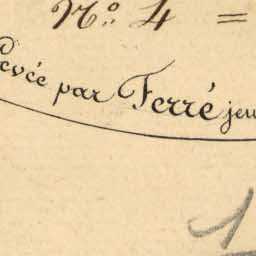 N.º 4 =
Levée par Ferré jeu
1